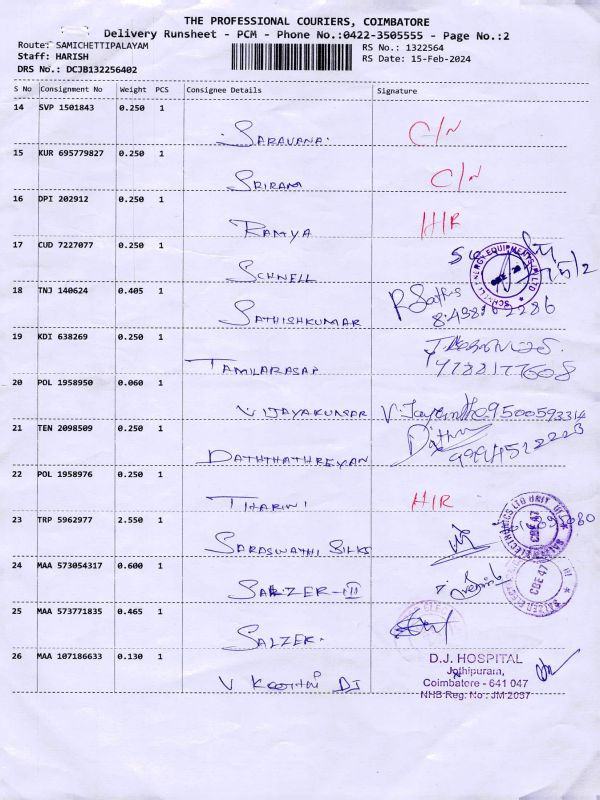 THE PROFESSIONAL COURIERS, COIMBATORE
Delivery Runsheet - PCM - Phone No.:0422-3505555 - Page No.:2
Route: SAMICHETTIPALAYAM
RS No.: 1322564
Staff: HARISH
RS Date: 15-Feb-2024
DRS No.: DCJB132256402
S No Consignment No Weight PCS Consignee Details Signature
14 SVP 1501843 0.250 1
SARAVANA. C/N
15 KUR 695779827 0.250 1
SRIRAM C/N
16 DPI 202912 0.250 1
RAMYA H/R
17 CUD 7227077 0.250 1
SCHNELL
18 TNJ 140624 0.405 1
SATHISHKUMAR
19 KDI 638269 0.250 1
TAMILARASAP
20 POL 1958950 0.060 1
VIJAYAKUMAR V. 9500593314
21 TEN 2098509 0.250 1
DATHTHATHREYAN
22 POL 1958976 0.250 1
THARINI H/R
23 TRP 5962977 2.550 1
SARASWATHI SILKS
24 MAA 573054317 0.600 1
SALZER-III
25 MAA 573771835 0.465 1
SALZER.
26 MAA 107186633 0.130 1
D.J. HOSPITAL
Jothipuram,
Coimbatore - 641 047
NHB Reg. No : JM 2037
V DJ